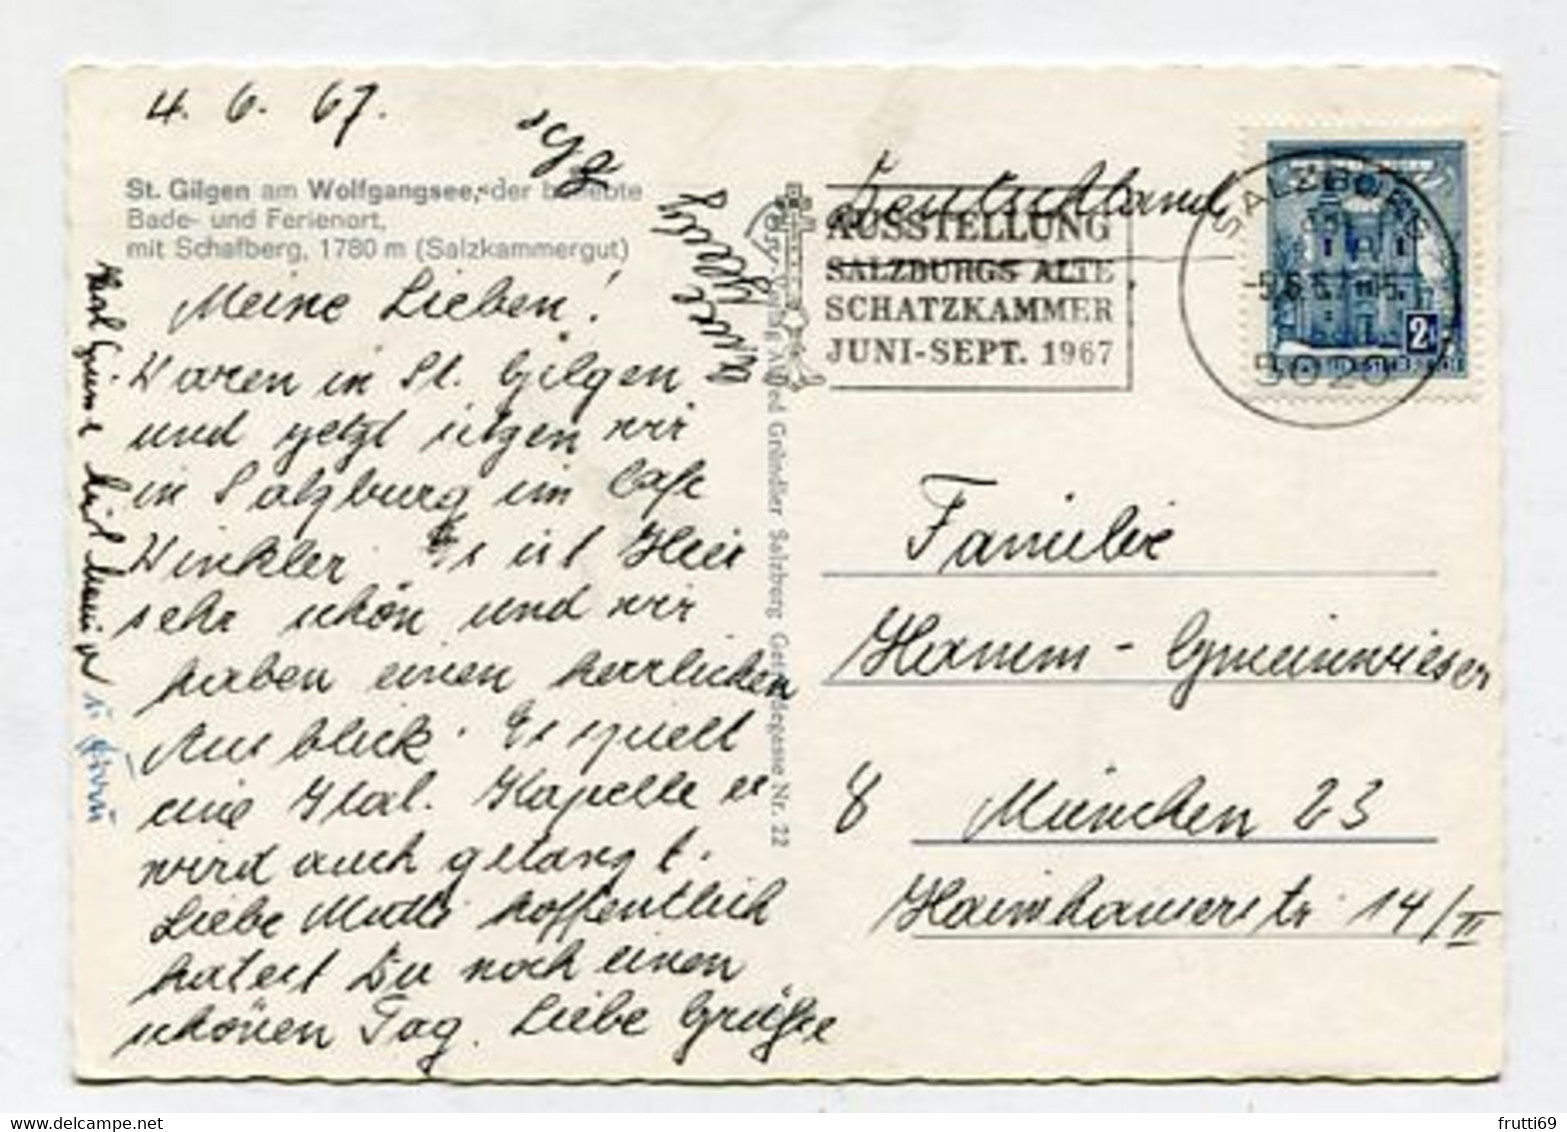 4. 6. 67.
St. Gilgen am Wolfgangsee, der beliebte
Bade- und Ferienort,
mit Schafberg, 1780 m (Salzkammergut)
Meine Lieben!
Waren in St. Gilgen
und jetzt sitzen wir
in Salzburg im Cafe
Winkler. Es ist Hier
sehr schön und wir
haben einen herrlichen
Ausblick. Es spielt
eine Ital. Kapelle es
wird auch getanzt.
Liebe Mutti hoffentlich
hatest Du noch einen
schönen Tag. Liebe Grüße
Alfred Gründler Salzburg Getreidegasse Nr. 22
Deutschland
AUSSTELLUNG
SALZBURGS ALTE
SCHATZKAMMER
JUNI-SEPT. 1967
SALZBURG
5020
Familie
Hamm - Gmeinwieser
8 München 23
Haimhauserstr 14/II
frutti69